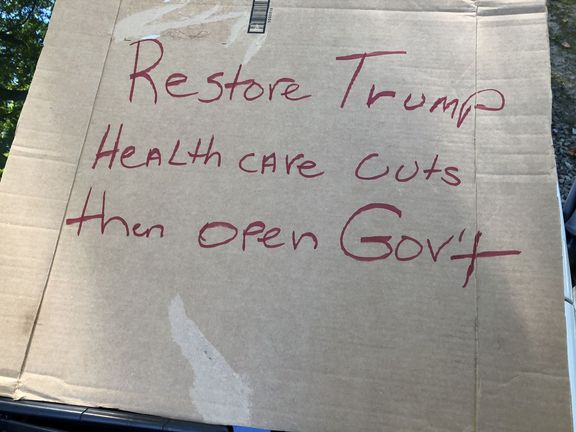 Restore Trump
HeALth cAre cuts
then open Gov't